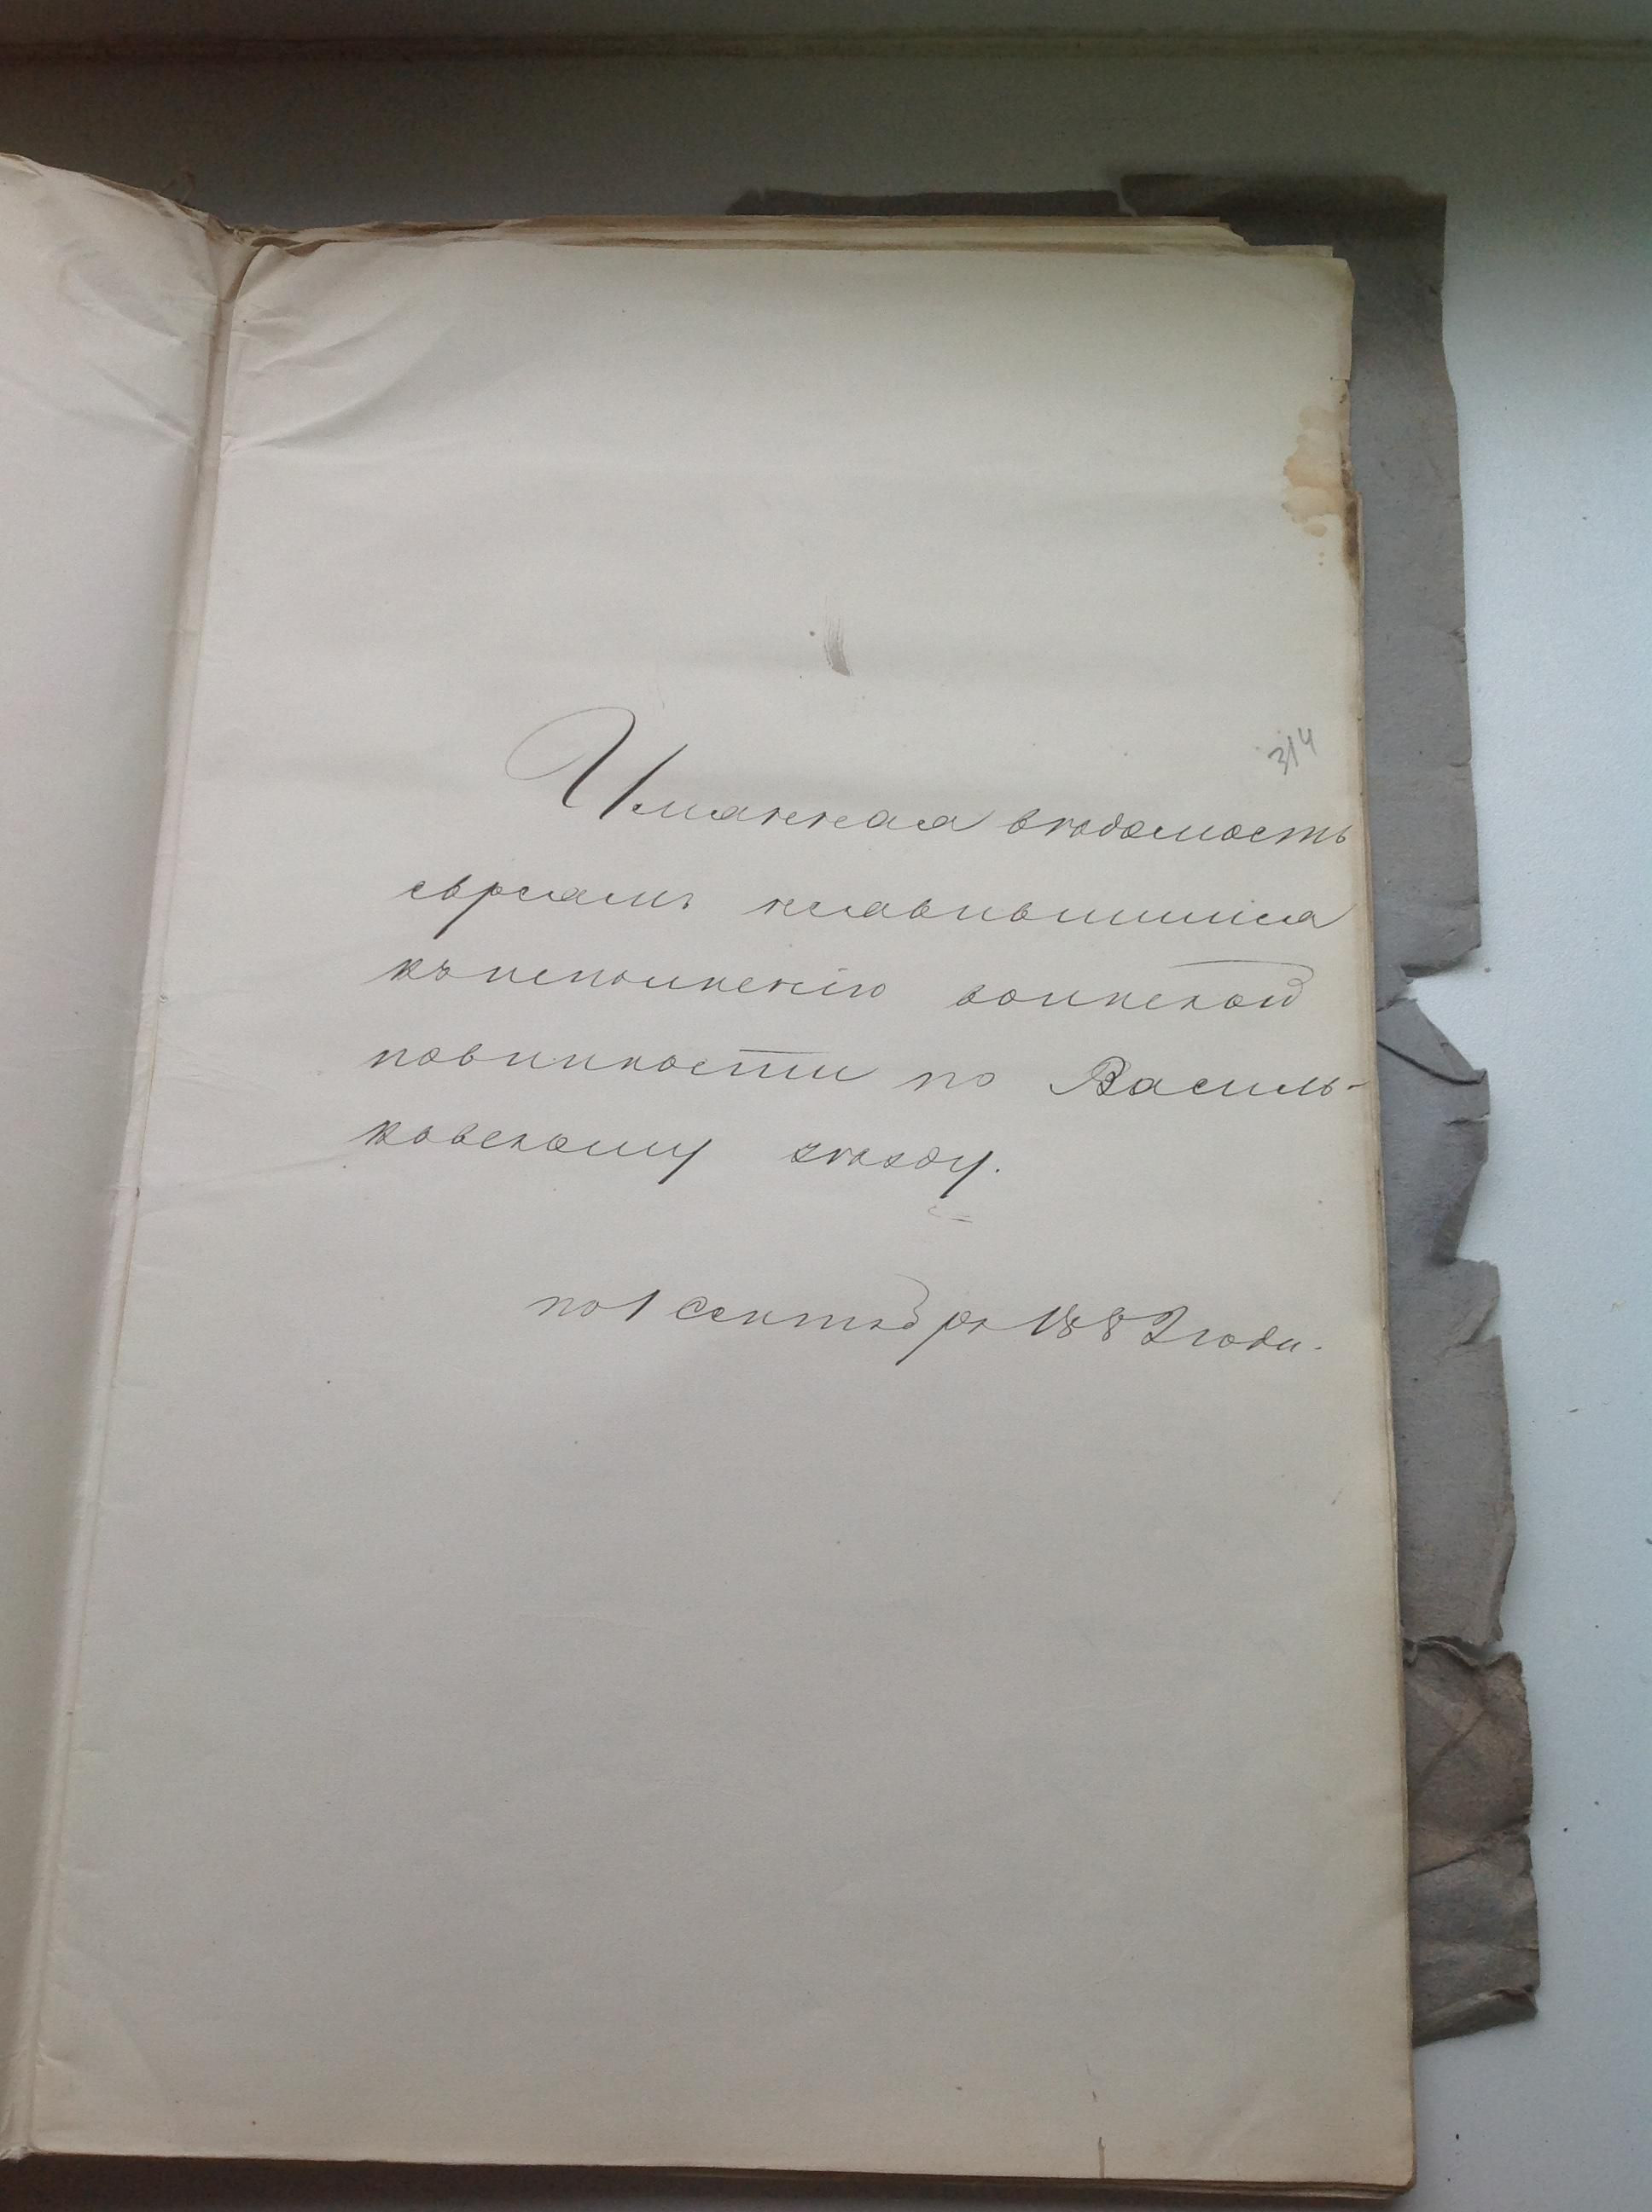 314
Имянная вѣдомость
евреямъ неявившимся
къ исполненію воинской
повинности по Василь-
ковскому уѣзду.
по 1 Сентября 1882 года.